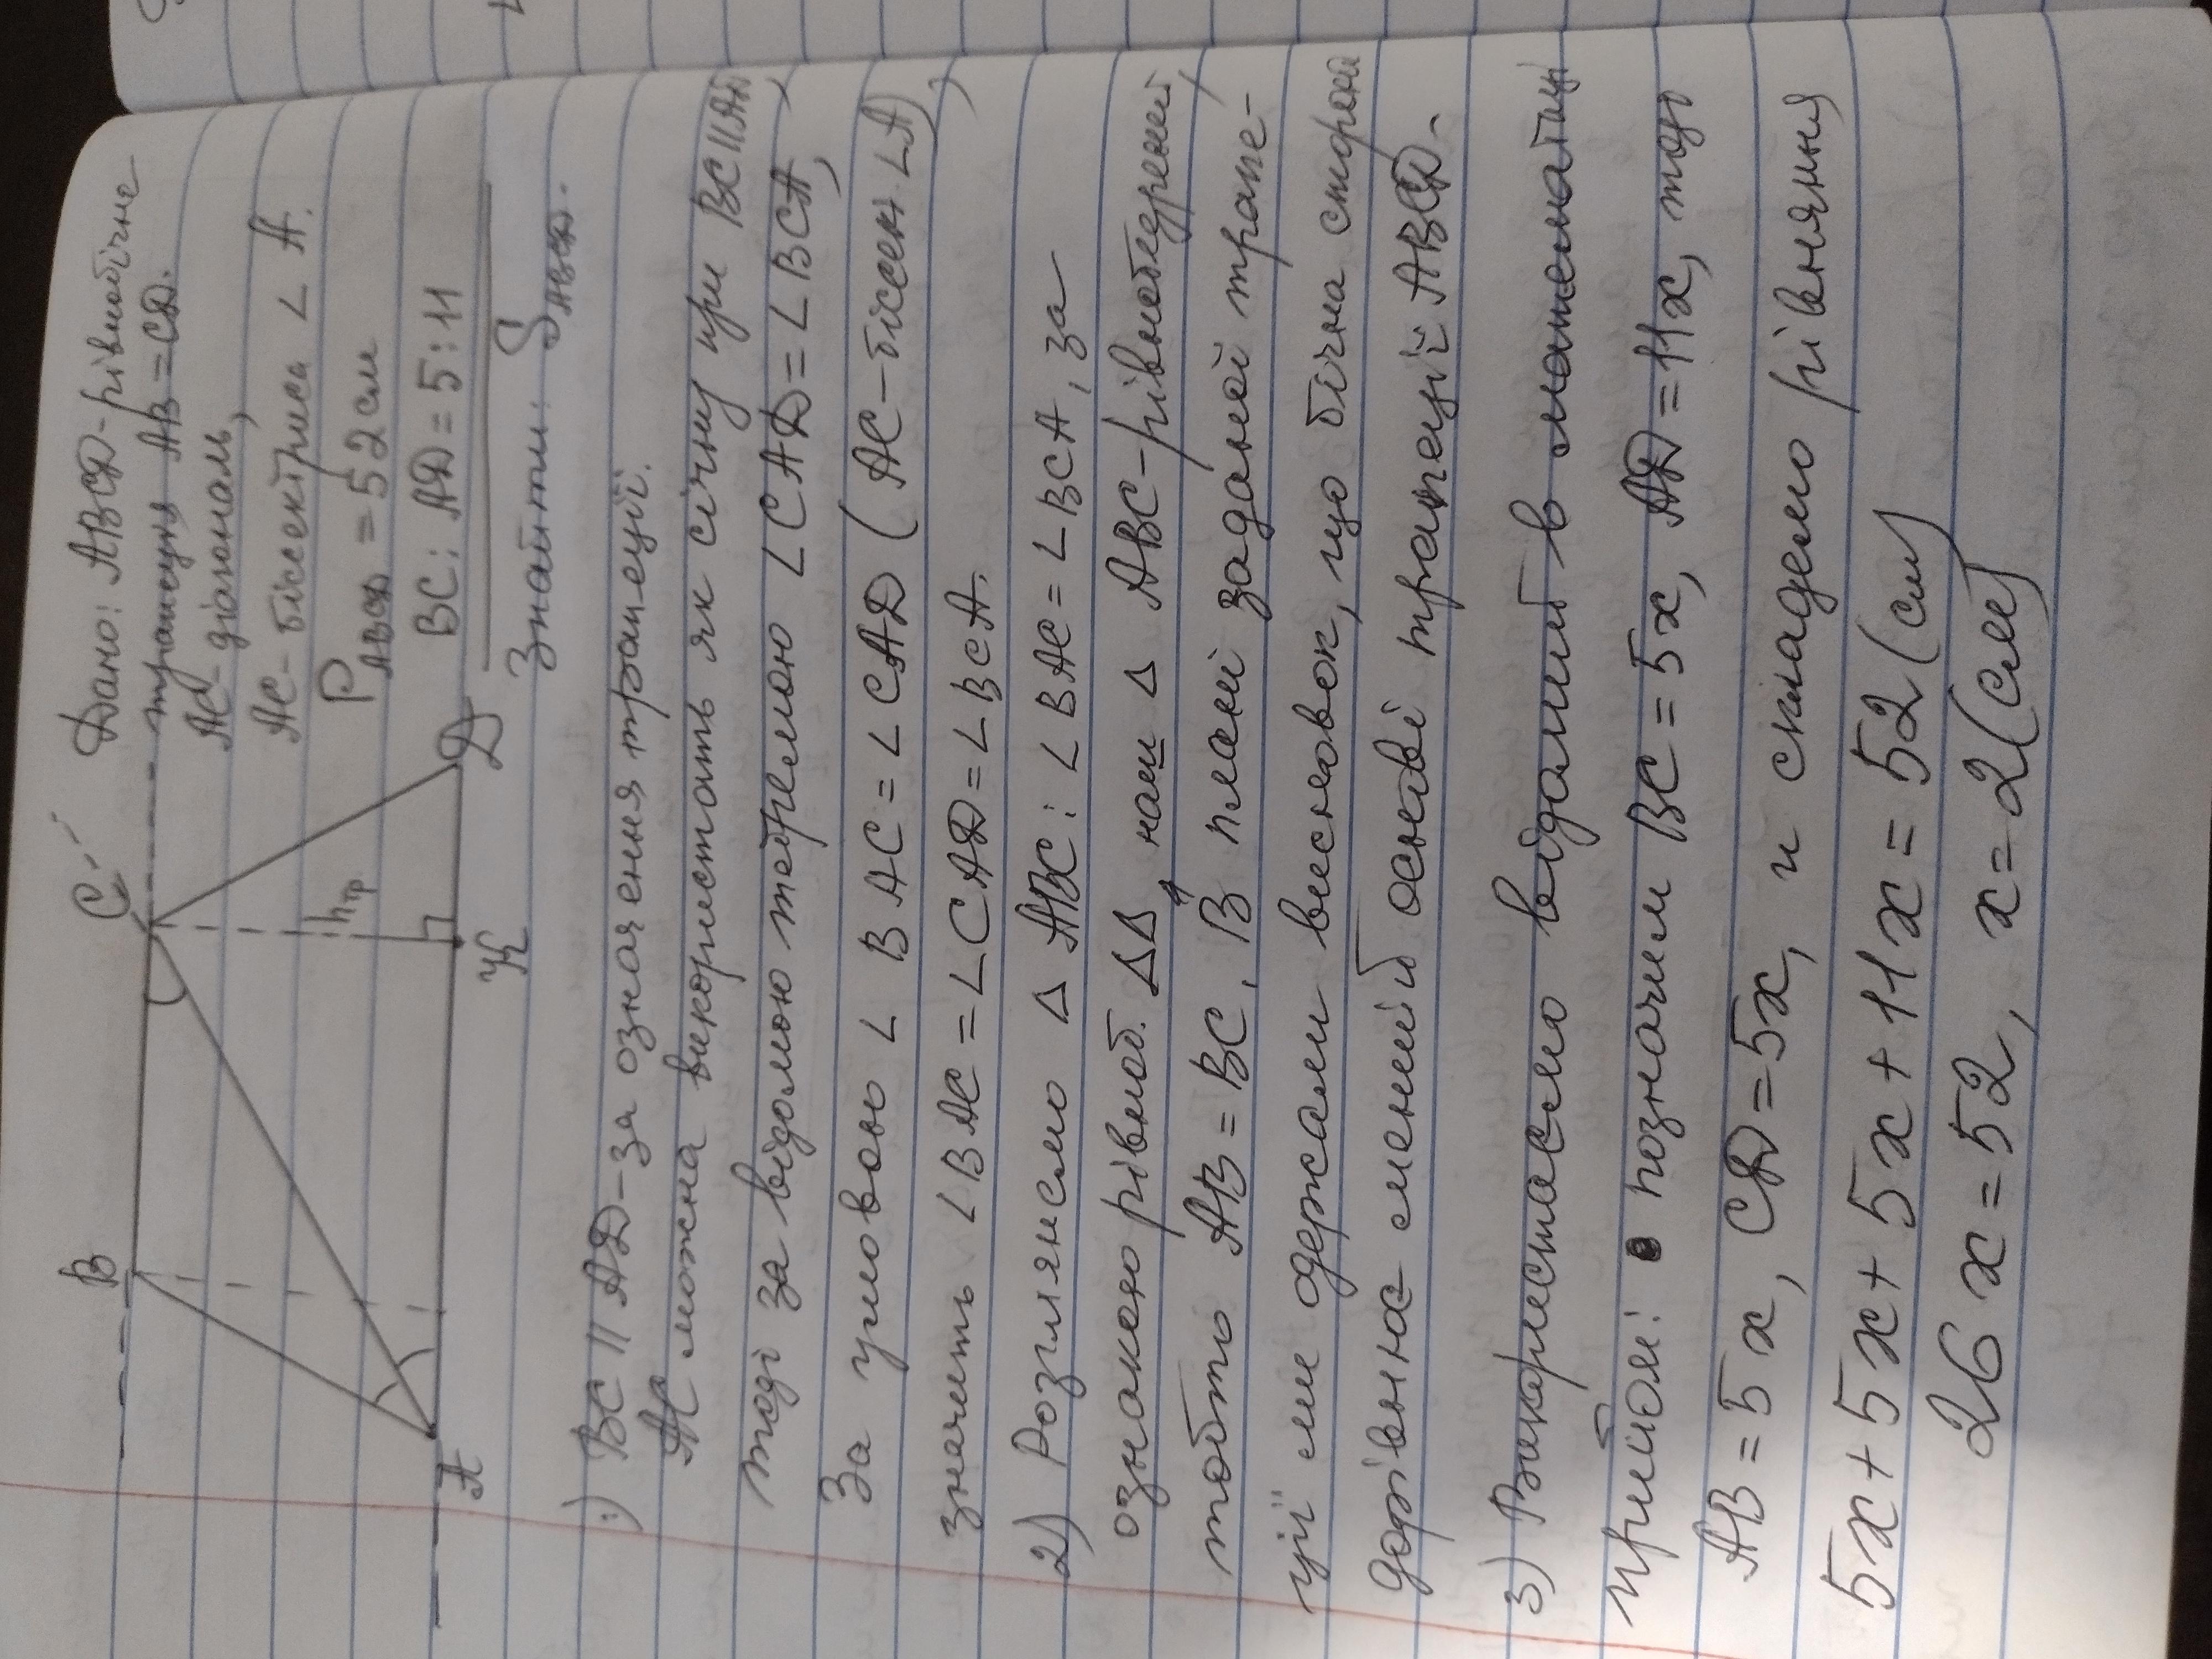 Дано: ABCD-рівнобічне
трапеція AB=CD.
AC-діагональ,
AC-бісектриса ∠A.
P ABCD = 52 см
BC:AD=5:11
Знайти: S ABCD.
B
C
A
K
D
hтр
1) BC || AD-за означення трапеції.
AC можна використать як січну при BC||AD,
тоді за відомою теоремою ∠CAD=∠BCA,
За умовою ∠BAC=∠CAD (AC-бісект ∠A),
значить ∠BAC=∠CAD=∠BCA.
2) Розглянемо Δ ABC: ∠BAC=∠BCA, за
ознакою рівноб. ΔΔ наш Δ ABC-рівнобедрений,
тобто AB=BC. В даній заданой трапе-
ції ми одержали висновок, що бічна сторона
дорівнює меншій основі трапеції ABCD.
3) Використаємо відомий в математиці
прийом: позначим BC=5x, AD=11x, тоді
AB=5x, CD=5x, и складемо рівняння
5x+5x+5x+11x=52(см)
26x=52, x=2(см)